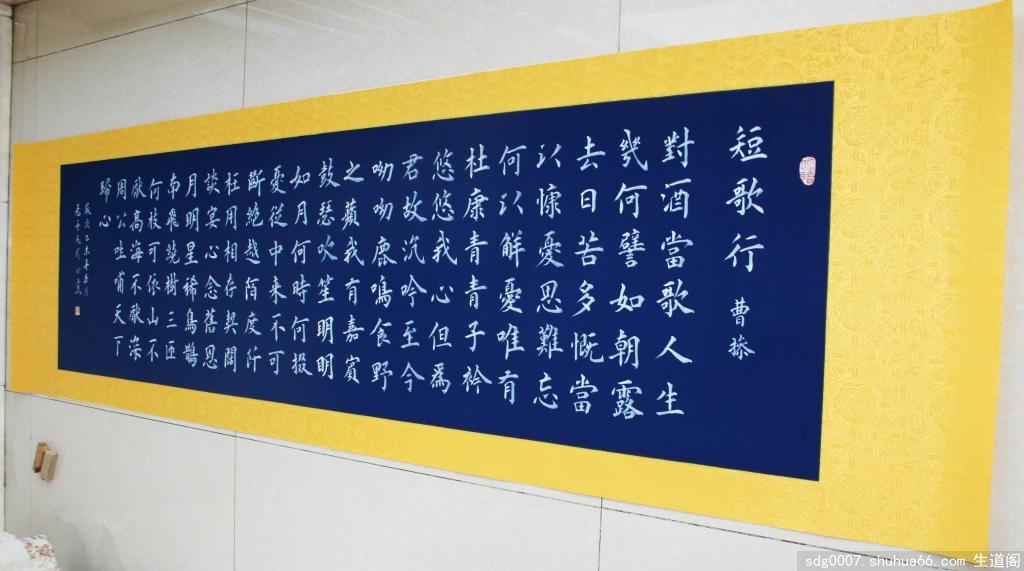 短歌行 曹操
對酒當歌人生
幾何譬如朝露
去日苦多慨當
以慷憂思難忘
何以解憂唯有
杜康青青子衿
悠悠我心但為
君故沉吟至今
呦呦鹿鳴食野
之蘋我有嘉賓
鼓瑟吹笙明明
如月何時何掇
憂從中来不可
斷絕越陌度阡
枉用相存契闊
談宴心念舊恩
月明星稀烏鵲
南飛繞樹三匝
何枝可依山不
厭高海不厭深
周公吐哺天下
歸心
sdg0007.shuhua66.com 生道阁